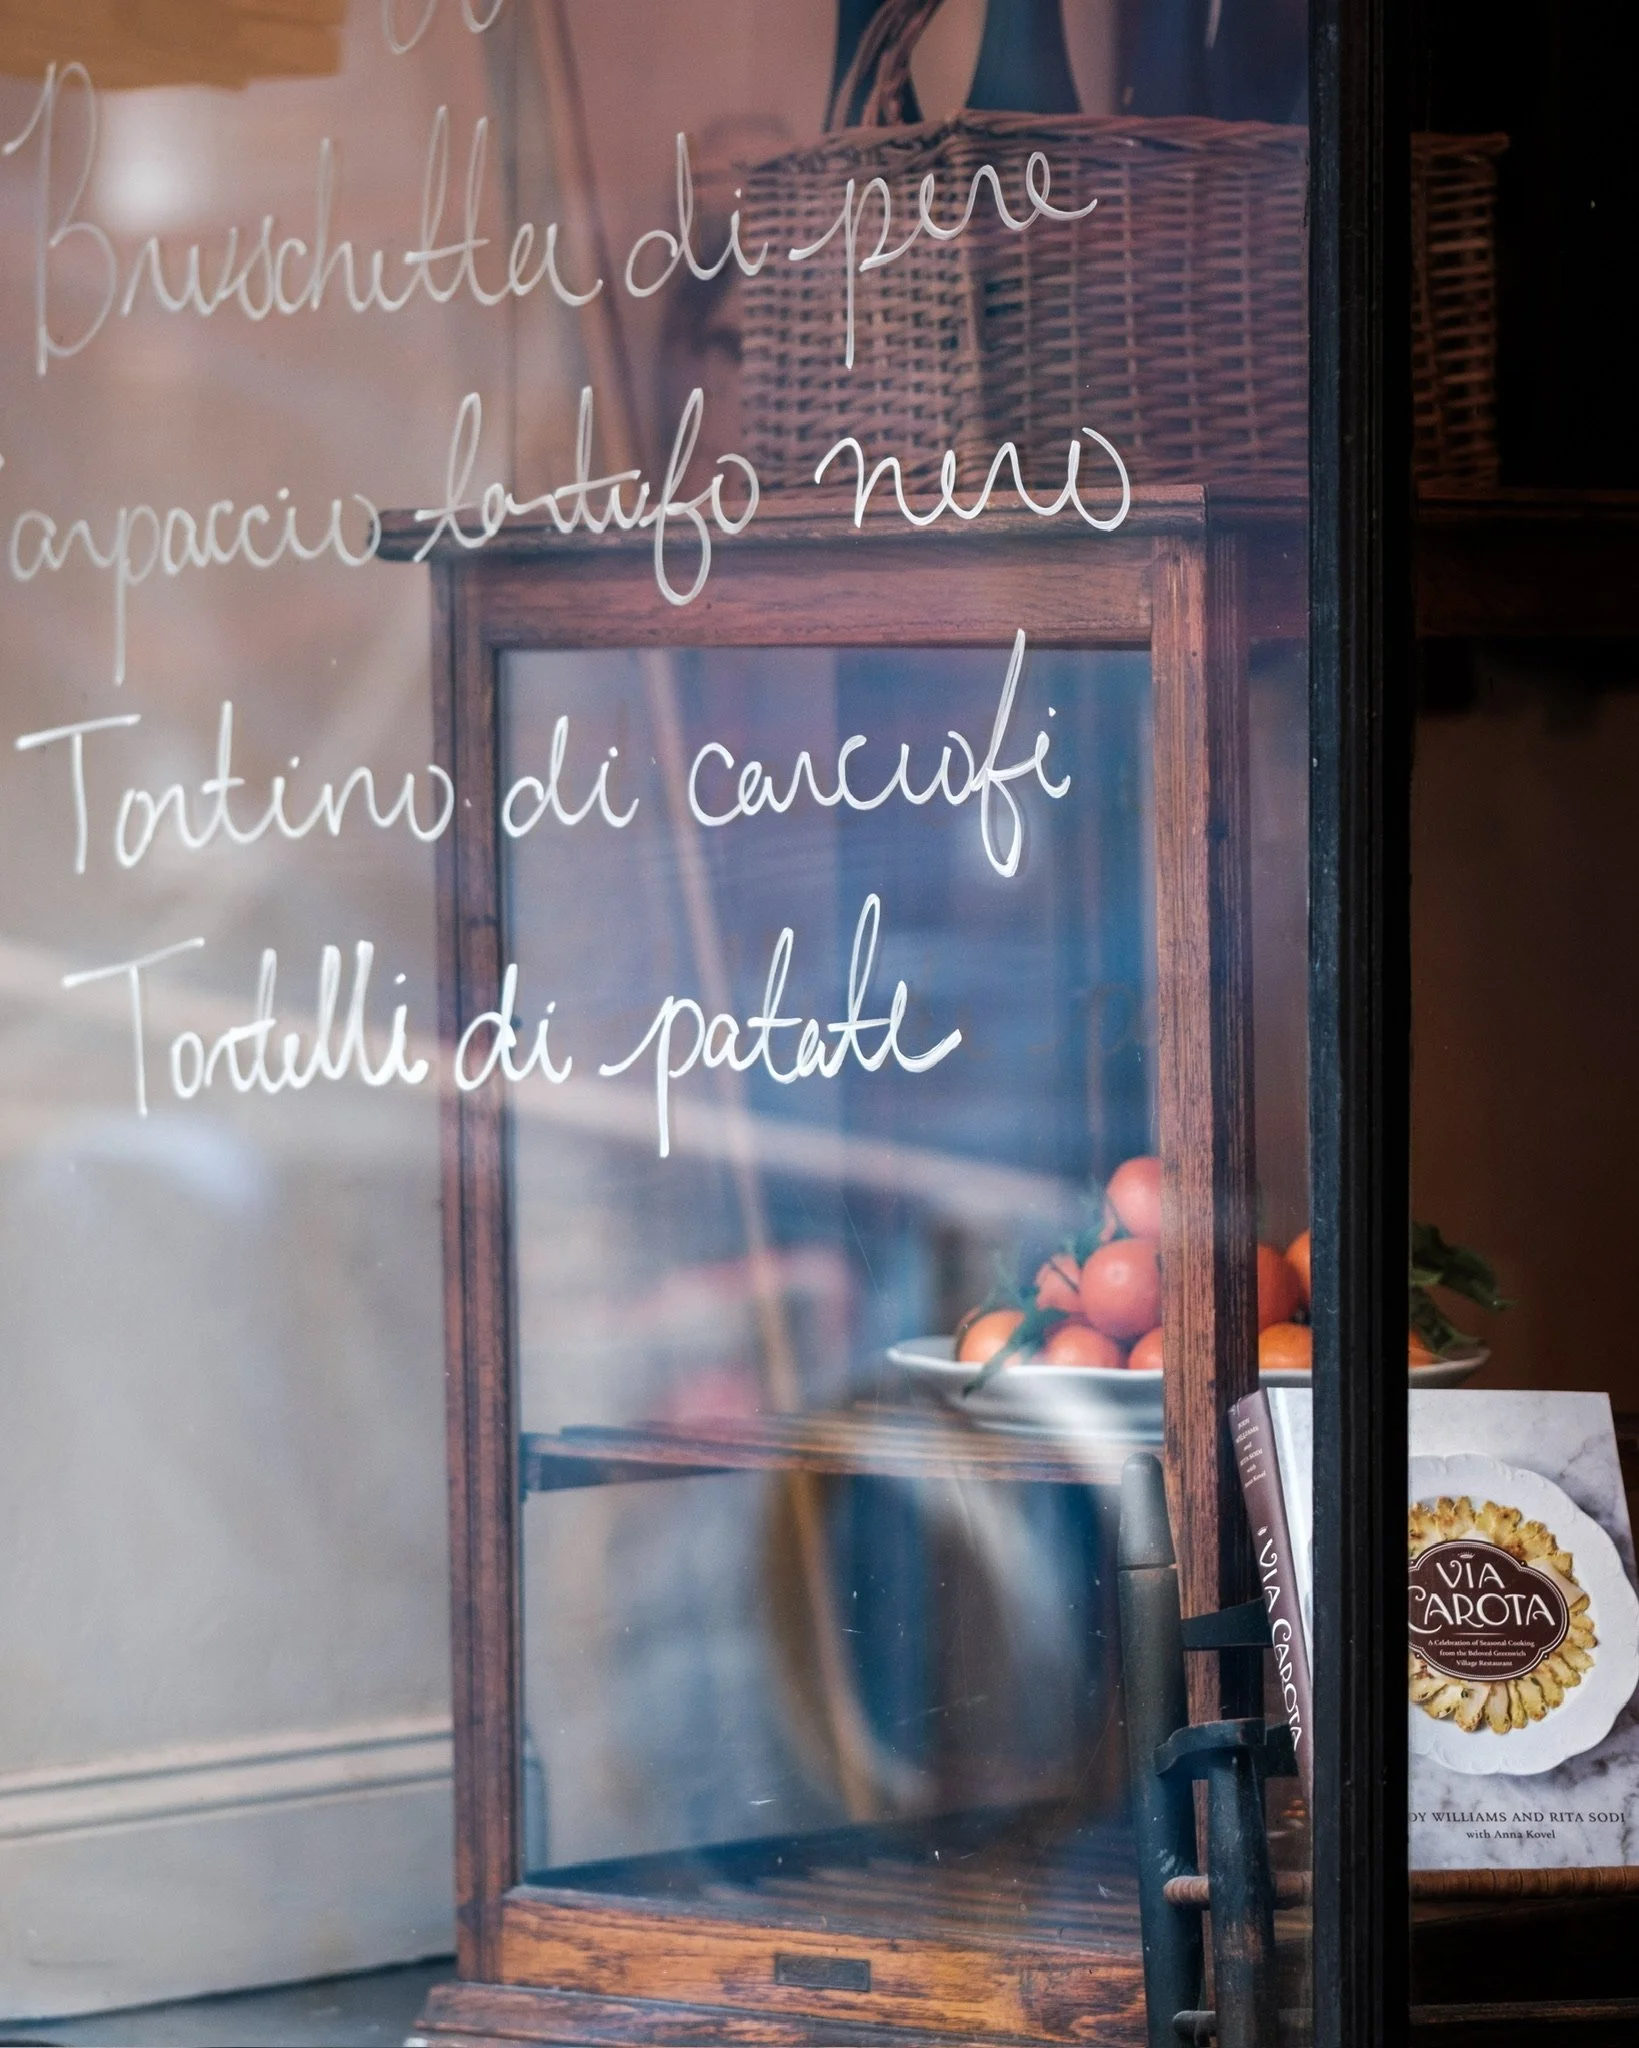 Bruschetta di pere
arpaccio tartufo nero
Tortino di carciofi
Tortelli di patate
JODY WILLIAMS and RITA SODI with Anna Kovel
VIA CAROTA
VIA
CAROTA
A Celebration of Seasonal Cooking
from the Beloved Greenwich
Village Restaurant
DY WILLIAMS AND RITA SODI
with Anna Kovel